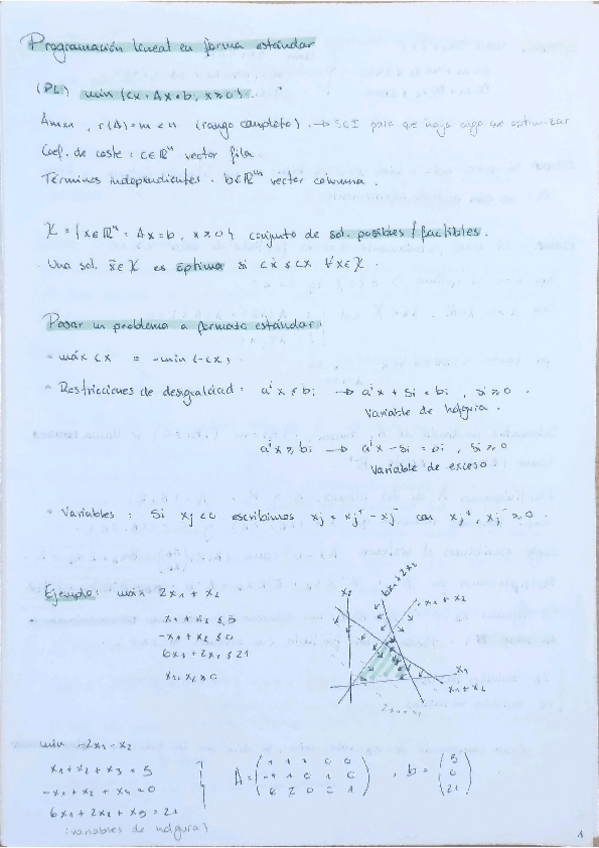 Programación lineal en forma estándar
(PL) min {cx : Ax = b, x ≥ 0}.
Amxn, r(A) = m < n (rango completo). → SCI para que haya algo que optimizar
Coef. de coste : c ∈ ℝⁿ vector fila.
Términos independientes. b ∈ ℝᵐ vector columna.
X = {x ∈ ℝⁿ : Ax = b, x ≥ 0} conjunto de sol. posibles / factibles.
Una sol. x̄ ∈ X es óptima si cx̄ ≤ cx ∀x ∈ X.
Pasar un problema a formato estándar:
máx cx = -min (-cx)
Restricciones de desigualdad: aⁱx ≤ bi → aⁱx + si = bi, si ≥ 0.
variable de holgura.
aⁱx ≥ bi → aⁱx - si = bi, si ≥ 0
variable de exceso
Variables : Si xj < 0 escribimos xj = xj⁺ - xj⁻ con xj⁺, xj⁻ ≥ 0.
Ejemplo: máx 2x1 + x2
x1 + x2 ≤ 5
-x1 + x2 ≤ 0
6x1 + 2x2 ≤ 21
x1, x2 ≥ 0
x2
6x1 + 2x2
-x1 + x2
x1
x1 + x2
min -2x1 - x2
x1 + x2 + x3 = 5
-x1 + x2 + x4 = 0
6x1 + 2x2 + x5 = 21
(variables de holgura)
A = (1 1 1 0 0
-1 1 0 1 0
6 2 0 0 1), b = (5
0
21)
1